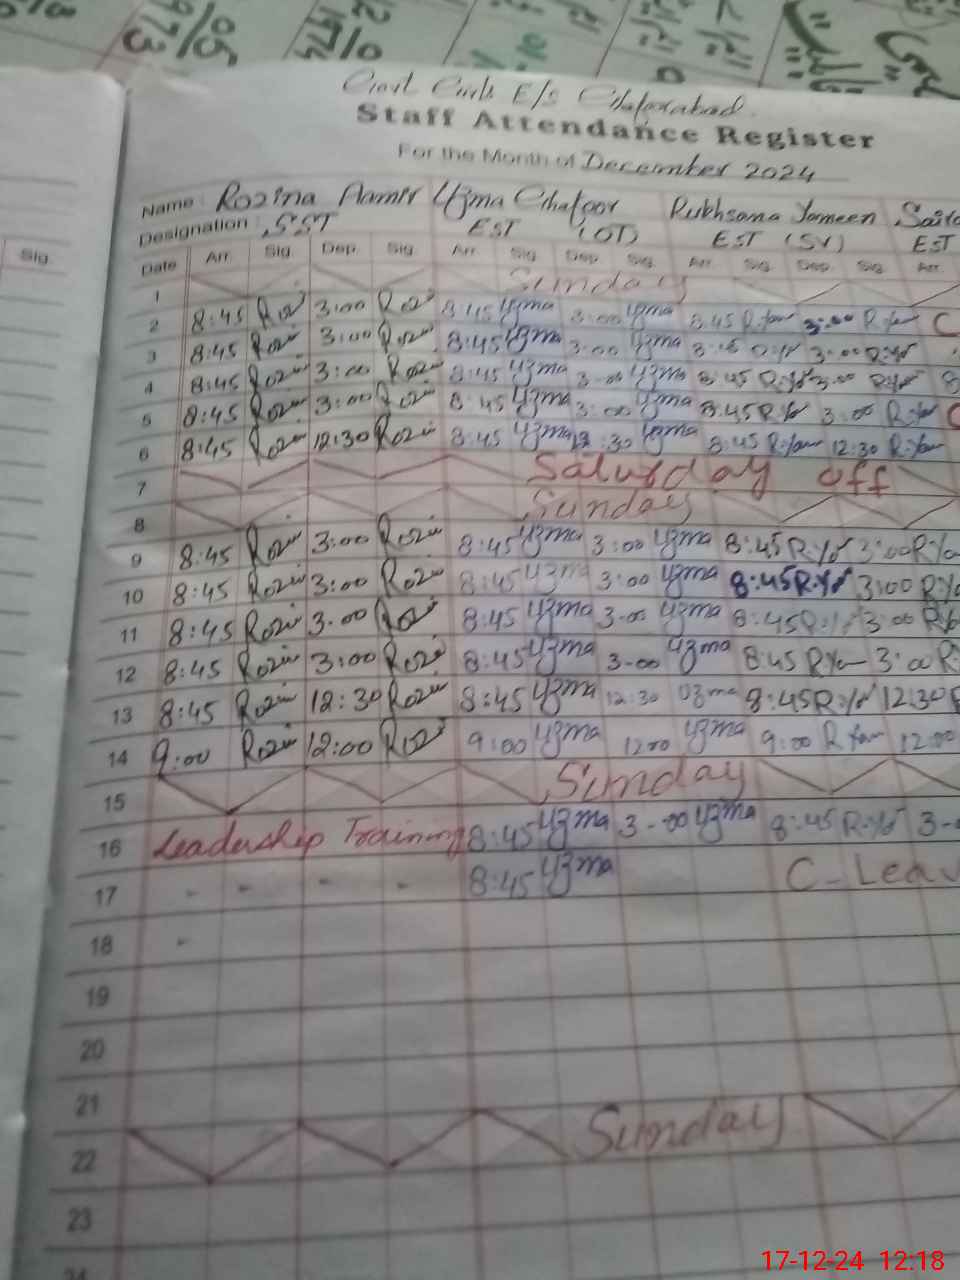 05
973
12
1974
Govt Girls E/S Ghafoorabad.
Staff Attendance Register
For the Month of December 2024
Name : Rozina Aamir Uzma Ghafoor Rukhsana Yameen
Designation : SST EST (OT) EST (SV) EST
Sig.
Date Arr. Sig. Dep. Sig. Arr. Sig. Dep. Sig. Arr. Sig. Dep. Sig. Arr.
1 Sunday
2 8:45 Rozi 3:00 Rozi 8:45 Uzma 3:00 Uzma 8:45 R.Yam 3:00 R.Yam C
3 8:45 Rozi 3:00 Rozi 8:45 Uzma 3-00 Uzma 8:45 R.Yam 3-00 R.Yam
4 8:45 Rozi 3:00 Rozi 8:45 Uzma 3-00 Uzma 8:45 R.Yam 3:00 R.Yam 8
5 8:45 Rozi 3:00 Rozi 8:45 Uzma 3:00 Uzma 8:45 R.Yam 3:00 R.Yam C
6 8:45 Rozi 12:30 Rozi 8:45 Uzma 12:30 Uzma 8:45 R.Yam 12:30 R.Yam
7 Saturday off
8 Sunday
9 8:45 Rozi 3:00 Rozi 8:45 Uzma 3:00 Uzma 8:45 R.Yam 3:00 R.Ya
10 8:45 Rozi 3:00 Rozi 8:45 Uzma 3:00 Uzma 8:45 R.Yam 3:00 R.Y
11 8:45 Rozi 3-00 Rozi 8:45 Uzma 3-00 Uzma 8:45 R.Y 3:00 R.Y
12 8:45 Rozi 3:00 Rozi 8:45 Uzma 3-00 Uzma 8:45 R.Yam 3:00 R
13 8:45 Rozi 12:30 Rozi 8:45 Uzma 12:30 Uzma 8:45 R.Yam 12:30 R
14 9:00 Rozi 12:00 Rozi 9:00 Uzma 1200 Uzma 9:00 R Yam 12:00
15 Sunday
16 Leadership Training 8:45 Uzma 3-00 Uzma 8:45 R.Yam 3-
17 - - - - 8:45 Uzma C-Leav
18 -
19
20
21
22 Sunday
23
24
17-12-24 12:18